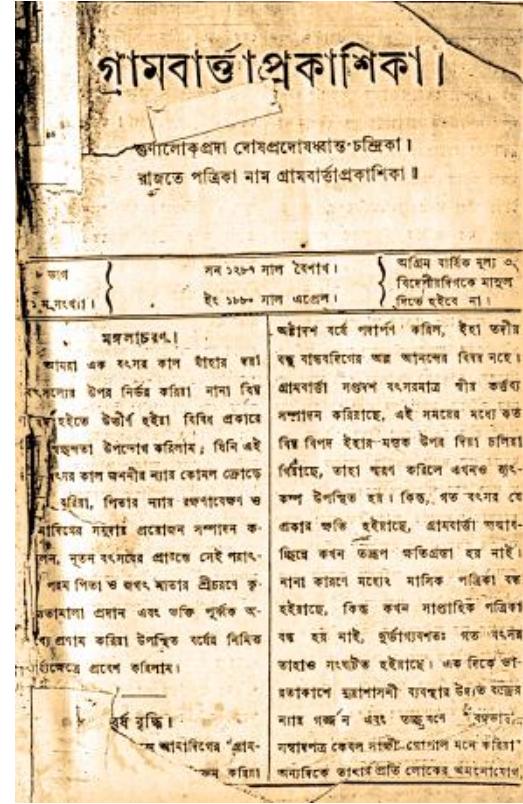 গ্রামবার্ত্তাপ্রকাশিকা।
গুণালোকপ্রদা দোষপ্রদোষধ্বান্ত-চন্দ্রিকা।
রাজতে পত্রিকা নাম গ্রামবার্ত্তাপ্রকাশিকা॥
ভাগ
সংখ্যা।
সন ১২৮৭ সাল বৈশাখ।
ইং ১৮৮০ সাল এপ্রেল।
অগ্রিম বার্ষিক মূল্য ৩
বিদেশীয়দিগকে মাসুল
দিতে হইবে না।
মঙ্গলাচরণ।
আমরা এক বৎসর কাল যাঁহার দয়া
উপর নির্ভর করিয়া নানা বিঘ্ন
হইতে উত্তীর্ণ হইয়া বিবিধ প্রকারে
উপভোগ করিলাম; যিনি এই
কাল জননীর ন্যায় কোমল ক্রোড়ে
পিতার ন্যায় রক্ষণাবেক্ষণ ও
প্রয়োজন সম্পাদন ক-
নূতন বৎসরের প্রারম্ভে সেই পরাৎ-
পরম পিতা ও জগৎ মাতার শ্রীচরণে কৃ-
প্রদান এবং ভক্তি পূর্ব্বক অ-
প্রণাম করিয়া উপস্থিত বর্ষের নিমিত্ত
প্রবেশ করিলাম।
বর্ষ বৃদ্ধি।
আমাদিগের "গ্রাম-
করিয়া
অষ্টাদশ বর্ষে পদার্পণ করিল, ইহা তদীয়
বন্ধু বান্ধবদিগের অল্প আনন্দের বিষয় নহে।
গ্রামবার্ত্তা সপ্তদশ বৎসরমাত্র স্বীয় কর্ত্তব্য
সম্পাদন করিয়াছে, এই সময়ের মধ্যে কত
বিঘ্ন বিপদ ইহার মস্তক উপর দিয়া চলিয়া
গিয়াছে, তাহা স্মরণ করিলে এখনও হৃৎ-
কম্প উপস্থিত হয়। কিন্তু, গত বৎসর যে
প্রকার ক্ষতি হইয়াছে, গ্রামবার্ত্তা জন্মাব-
চ্ছিন্নে কখন তদ্রূপ ক্ষতিগ্রস্তা হয় নাই।
নানা কারণে মধ্যে২ মাসিক পত্রিকা বন্ধ
হইয়াছে, কিন্তু কখন সাপ্তাহিক পত্রিকা
বন্ধ হয় নাই, দুর্ভাগ্যবশতঃ গত বৎসর
তাহাও সংঘটিত হইয়াছে। এক দিকে ভা-
রতাকাশে মুদ্রাশাসনী ব্যবস্থার উদ্যত বজ্রের
ন্যায় গর্জ্জন এবং
সম্বাদপত্র কেবল সাক্ষী গোপাল মনে করিয়া
অন্যদিকে তাহার প্রতি লোকের অমনোযোগ